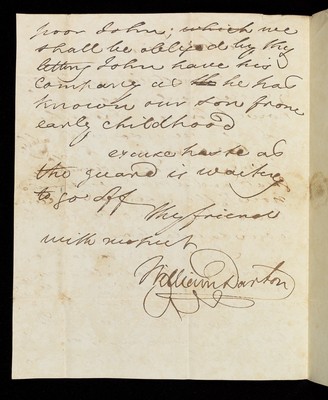 poor John; which we
shall be obliged by thy
letting John have his
company as he has
known our son from
early childhood
excuse haste as
the guard is waiting
to go off
thy friend
with respect
William Darton